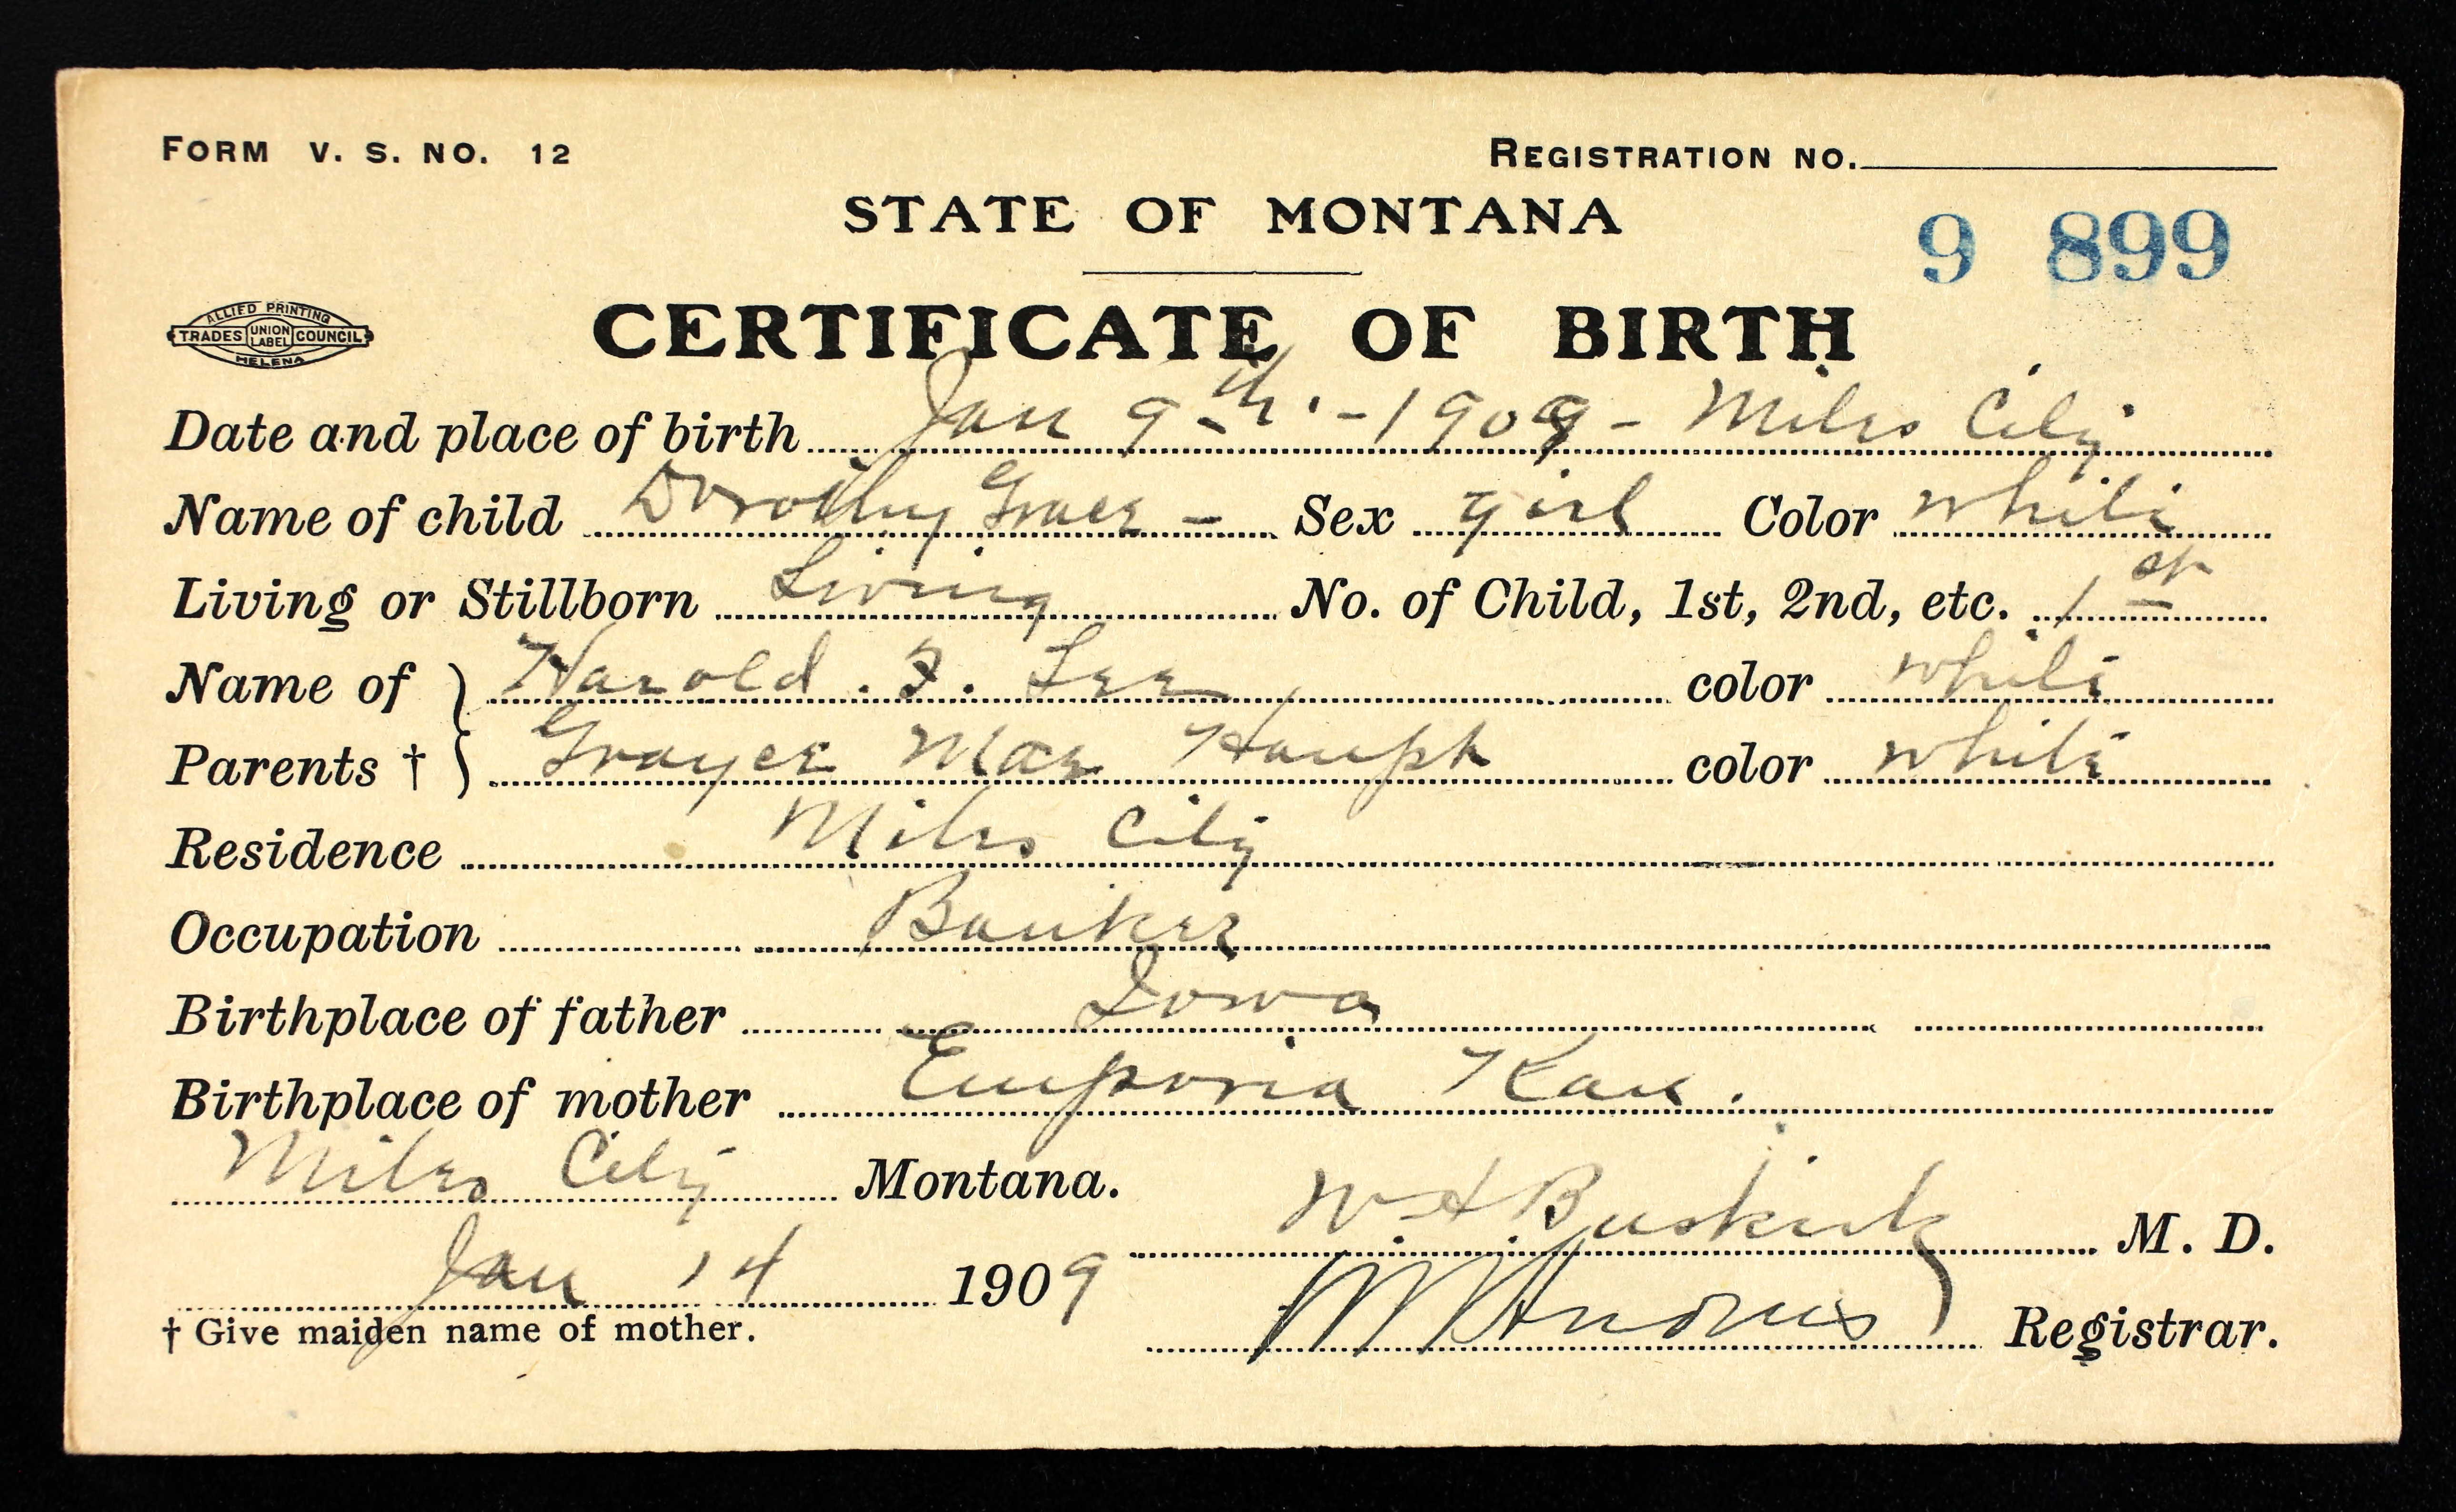 FORM V. S. NO. 12 REGISTRATION NO.
STATE OF MONTANA
9 899
ALLIED PRINTING
TRADES UNION LABEL COUNCIL
HELENA
CERTIFICATE OF BIRTH
Date and place of birth Jan 9th - 1909 - Miles City
Name of child Dorothy Grace - Sex girl Color white
Living or Stillborn Living No. of Child, 1st, 2nd, etc. 1st
Name of Harold . F. Lee color white
Parents † Mae color white
Residence Miles City
Occupation Banker
Birthplace of father Iowa
Birthplace of mother Emporia Kan.
Miles City Montana.
W A Buskirk M. D.
Jan 14 1909
Andrus Registrar.
† Give maiden name of mother.